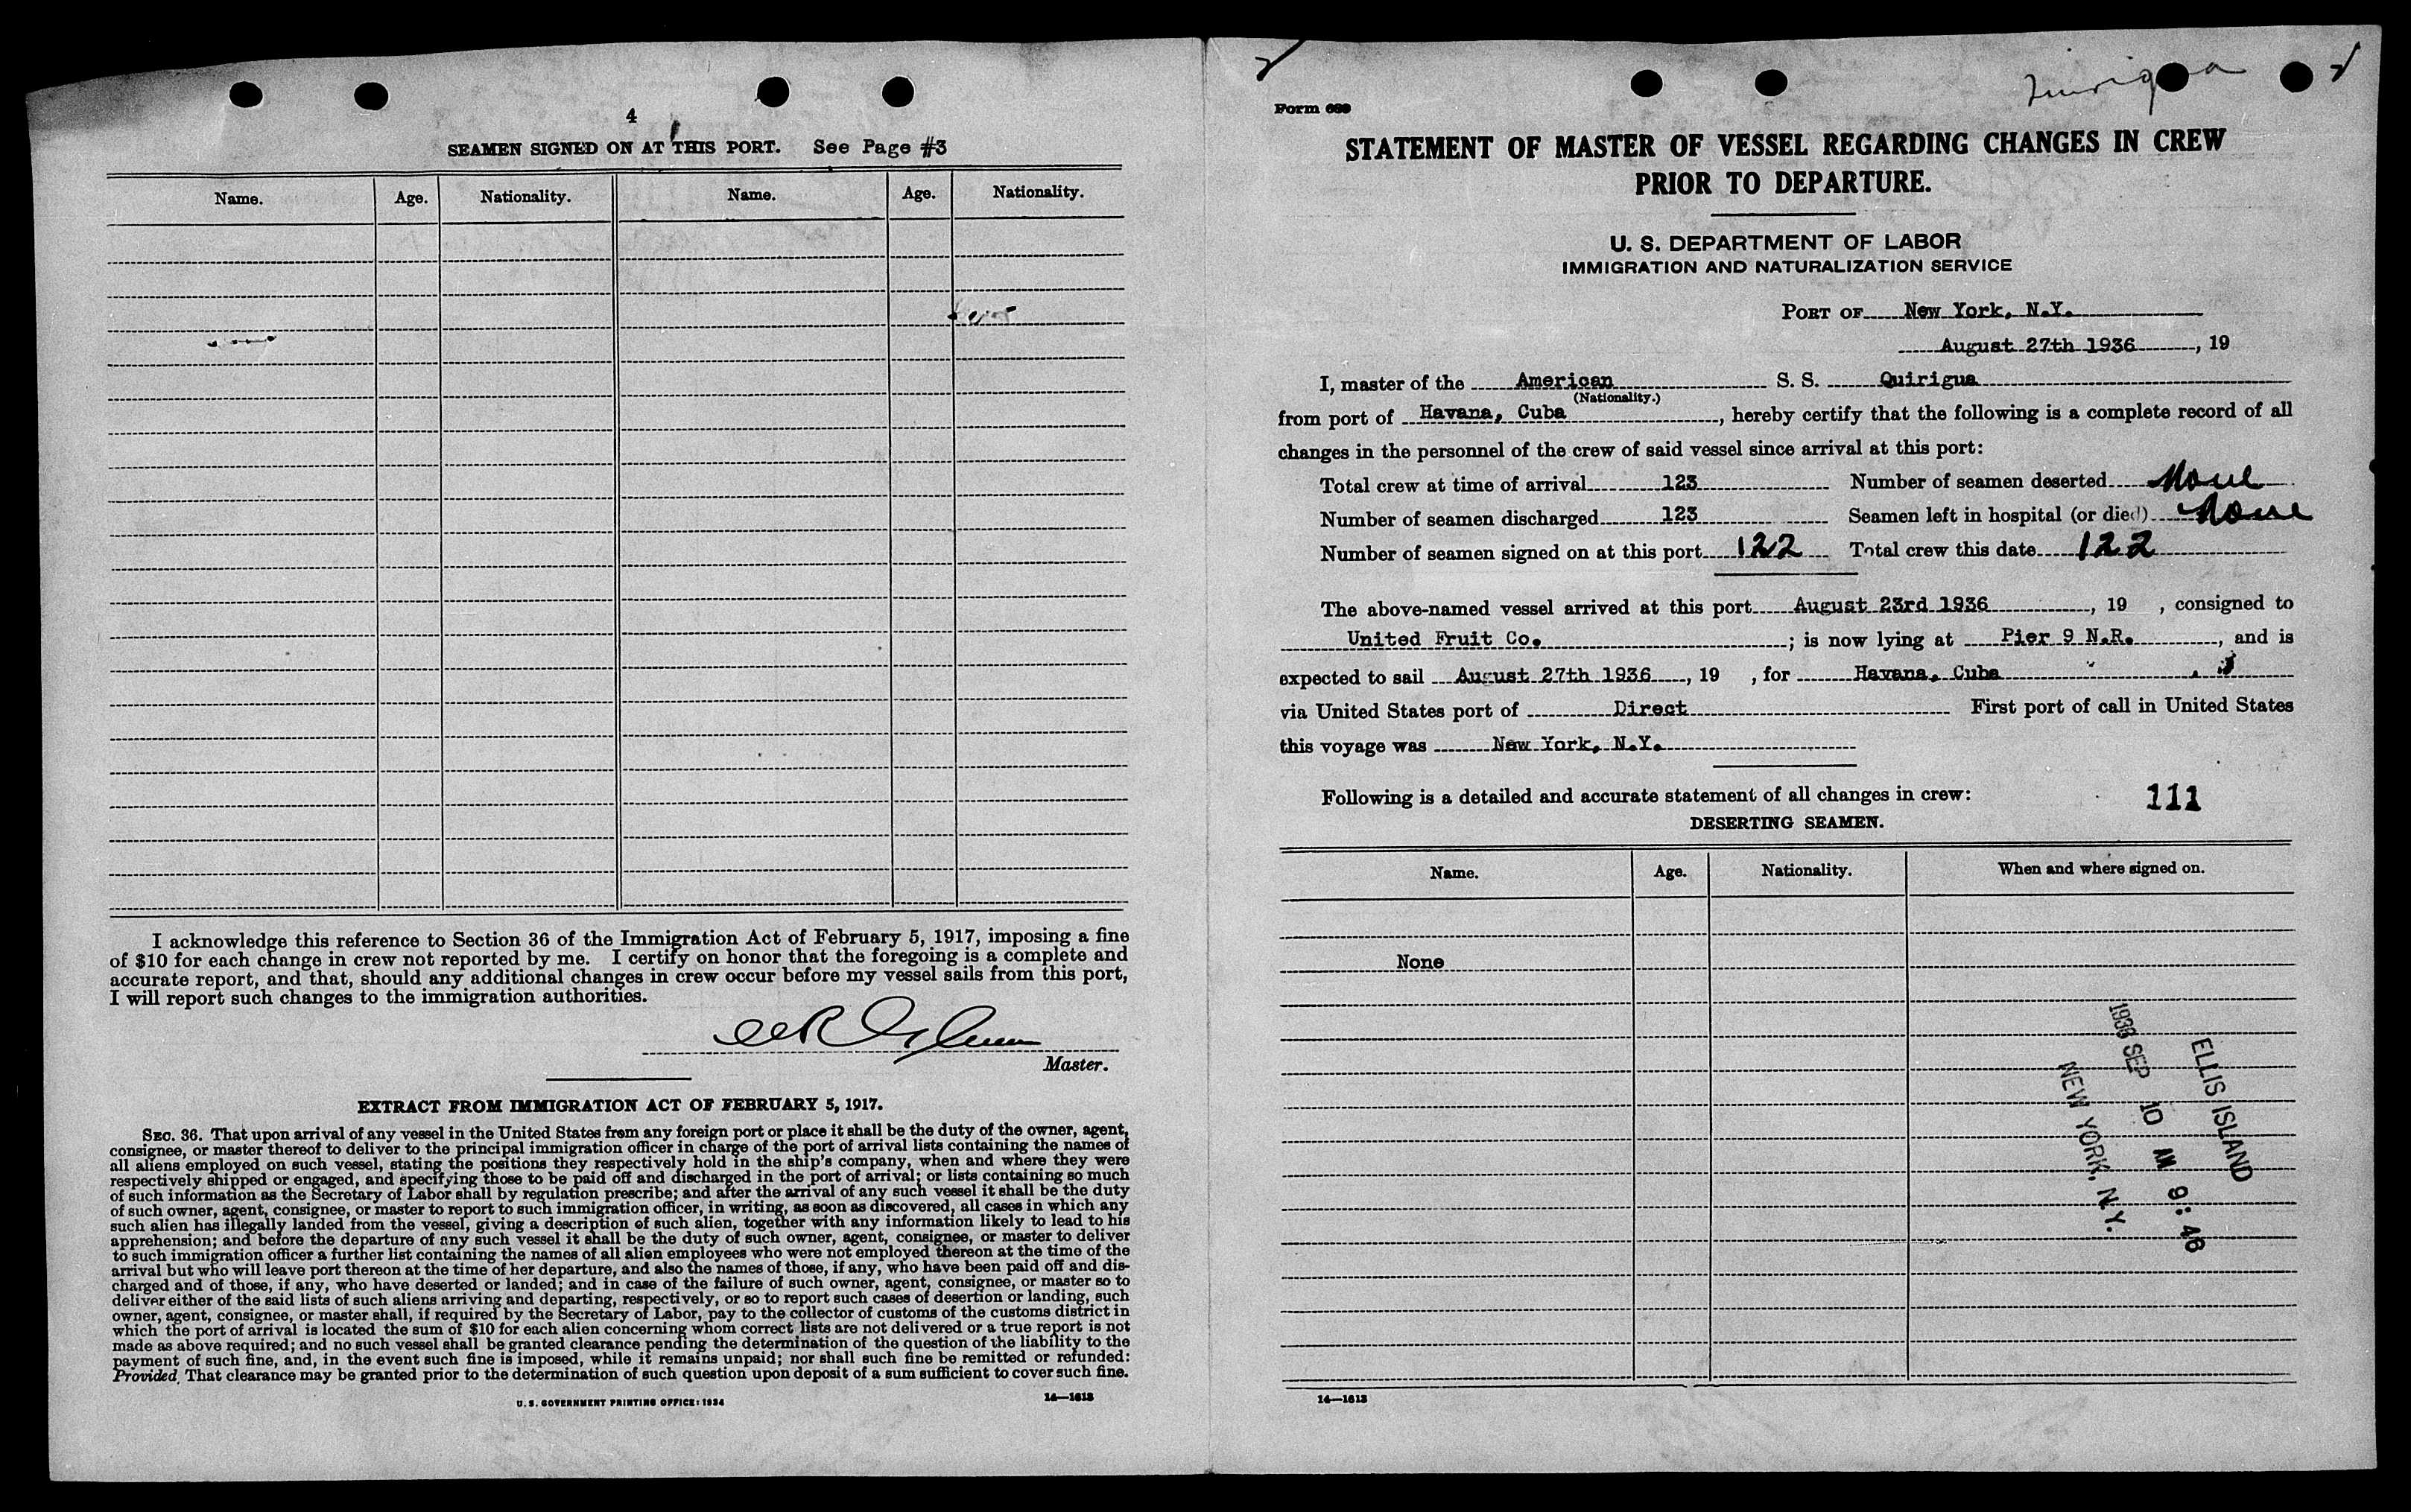 4
SEAMEN SIGNED ON AT THIS PORT. See Page #3
Name. Age. Nationality. Name. Age. Nationality.
I acknowledge this reference to Section 36 of the Immigration Act of February 5, 1917, imposing a fine
of $10 for each change in crew not reported by me. I certify on honor that the foregoing is a complete and
accurate report, and that, should any additional changes in crew occur before my vessel sails from this port,
I will report such changes to the immigration authorities.
Master.
EXTRACT FROM IMMIGRATION ACT OF FEBRUARY 5, 1917.
SEC. 36. That upon arrival of any vessel in the United States from any foreign port or place it shall be the duty of the owner, agent,
consignee, or master thereof to deliver to the principal immigration officer in charge of the port of arrival lists containing the names of
all aliens employed on such vessel, stating the positions they respectively hold in the ship's company, when and where they were
respectively shipped or engaged, and specifying those to be paid off and discharged in the port of arrival; or lists containing so much
of such information as the Secretary of Labor shall by regulation prescribe; and after the arrival of any such vessel it shall be the duty
of such owner, agent, consignee, or master to report to such immigration officer, in writing, as soon as discovered, all cases in which any
such alien has illegally landed from the vessel, giving a description of such alien, together with any information likely to lead to his
apprehension; and before the departure of any such vessel it shall be the duty of such owner, agent, consignee, or master to deliver
to such immigration officer a further list containing the names of all alien employees who were not employed thereon at the time of the
arrival but who will leave port thereon at the time of her departure, and also the names of those, if any, who have been paid off and dis-
charged and of those, if any, who have deserted or landed; and in case of the failure of such owner, agent, consignee, or master so to
deliver either of the said lists of such aliens arriving and departing, respectively, or so to report such cases of desertion or landing, such
owner, agent, consignee, or master shall, if required by the Secretary of Labor, pay to the collector of customs of the customs district in
which the port of arrival is located the sum of $10 for each alien concerning whom correct lists are not delivered or a true report is not
made as above required; and no such vessel shall be granted clearance pending the determination of the question of the liability to the
payment of such fine, and, in the event such fine is imposed, while it remains unpaid; nor shall such fine be remitted or refunded:
Provided, That clearance may be granted prior to the determination of such question upon deposit of a sum sufficient to cover such fine.
U. S. GOVERNMENT PRINTING OFFICE: 1934 14—1613
Form 689
STATEMENT OF MASTER OF VESSEL REGARDING CHANGES IN CREW
PRIOR TO DEPARTURE.
U. S. DEPARTMENT OF LABOR
IMMIGRATION AND NATURALIZATION SERVICE
PORT OF New York, N.Y.
August 27th 1936, 19
I, master of the American S. S. Quirigua
(Nationality.)
from port of Havana, Cuba, hereby certify that the following is a complete record of all
changes in the personnel of the crew of said vessel since arrival at this port:
Total crew at time of arrival 123 Number of seamen deserted None
Number of seamen discharged 123 Seamen left in hospital (or died) None
Number of seamen signed on at this port 122 Total crew this date 122
The above-named vessel arrived at this port August 23rd 1936, 19 , consigned to
United Fruit Co. ; is now lying at Pier 9 N.R., and is
expected to sail August 27th 1936, 19 , for Havana, Cuba
via United States port of Direct First port of call in United States
this voyage was New York, N.Y.
Following is a detailed and accurate statement of all changes in crew: 111
DESERTING SEAMEN.
Name. Age. Nationality. When and where signed on.
None
ELLIS ISLAND
1936 SEP 10 AM 9:46
NEW YORK, N.Y.
14—1613